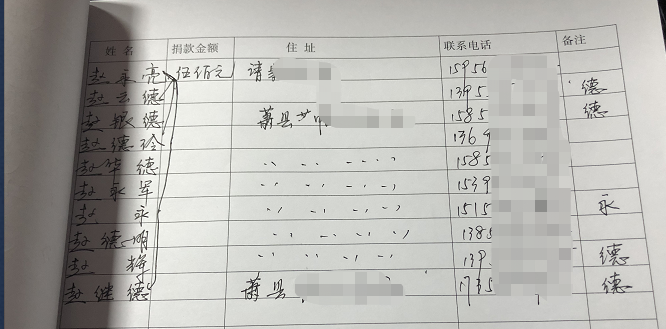 姓名 捐款金额 住址 联系电话 备注
赵永亮 伍佰元 请 1596
赵云德 1395 德
赵振德 萧县 1585 德
赵德玲 1369
赵华德 〃 〃 〃 〃 1585
赵永军 〃 〃 〃 〃 1539
赵永 〃 〃 〃 〃 1515 永
赵德明 〃 〃 〃 〃 1385
赵辉 〃 〃 〃 〃 139 德
赵继德 萧县 1735 德